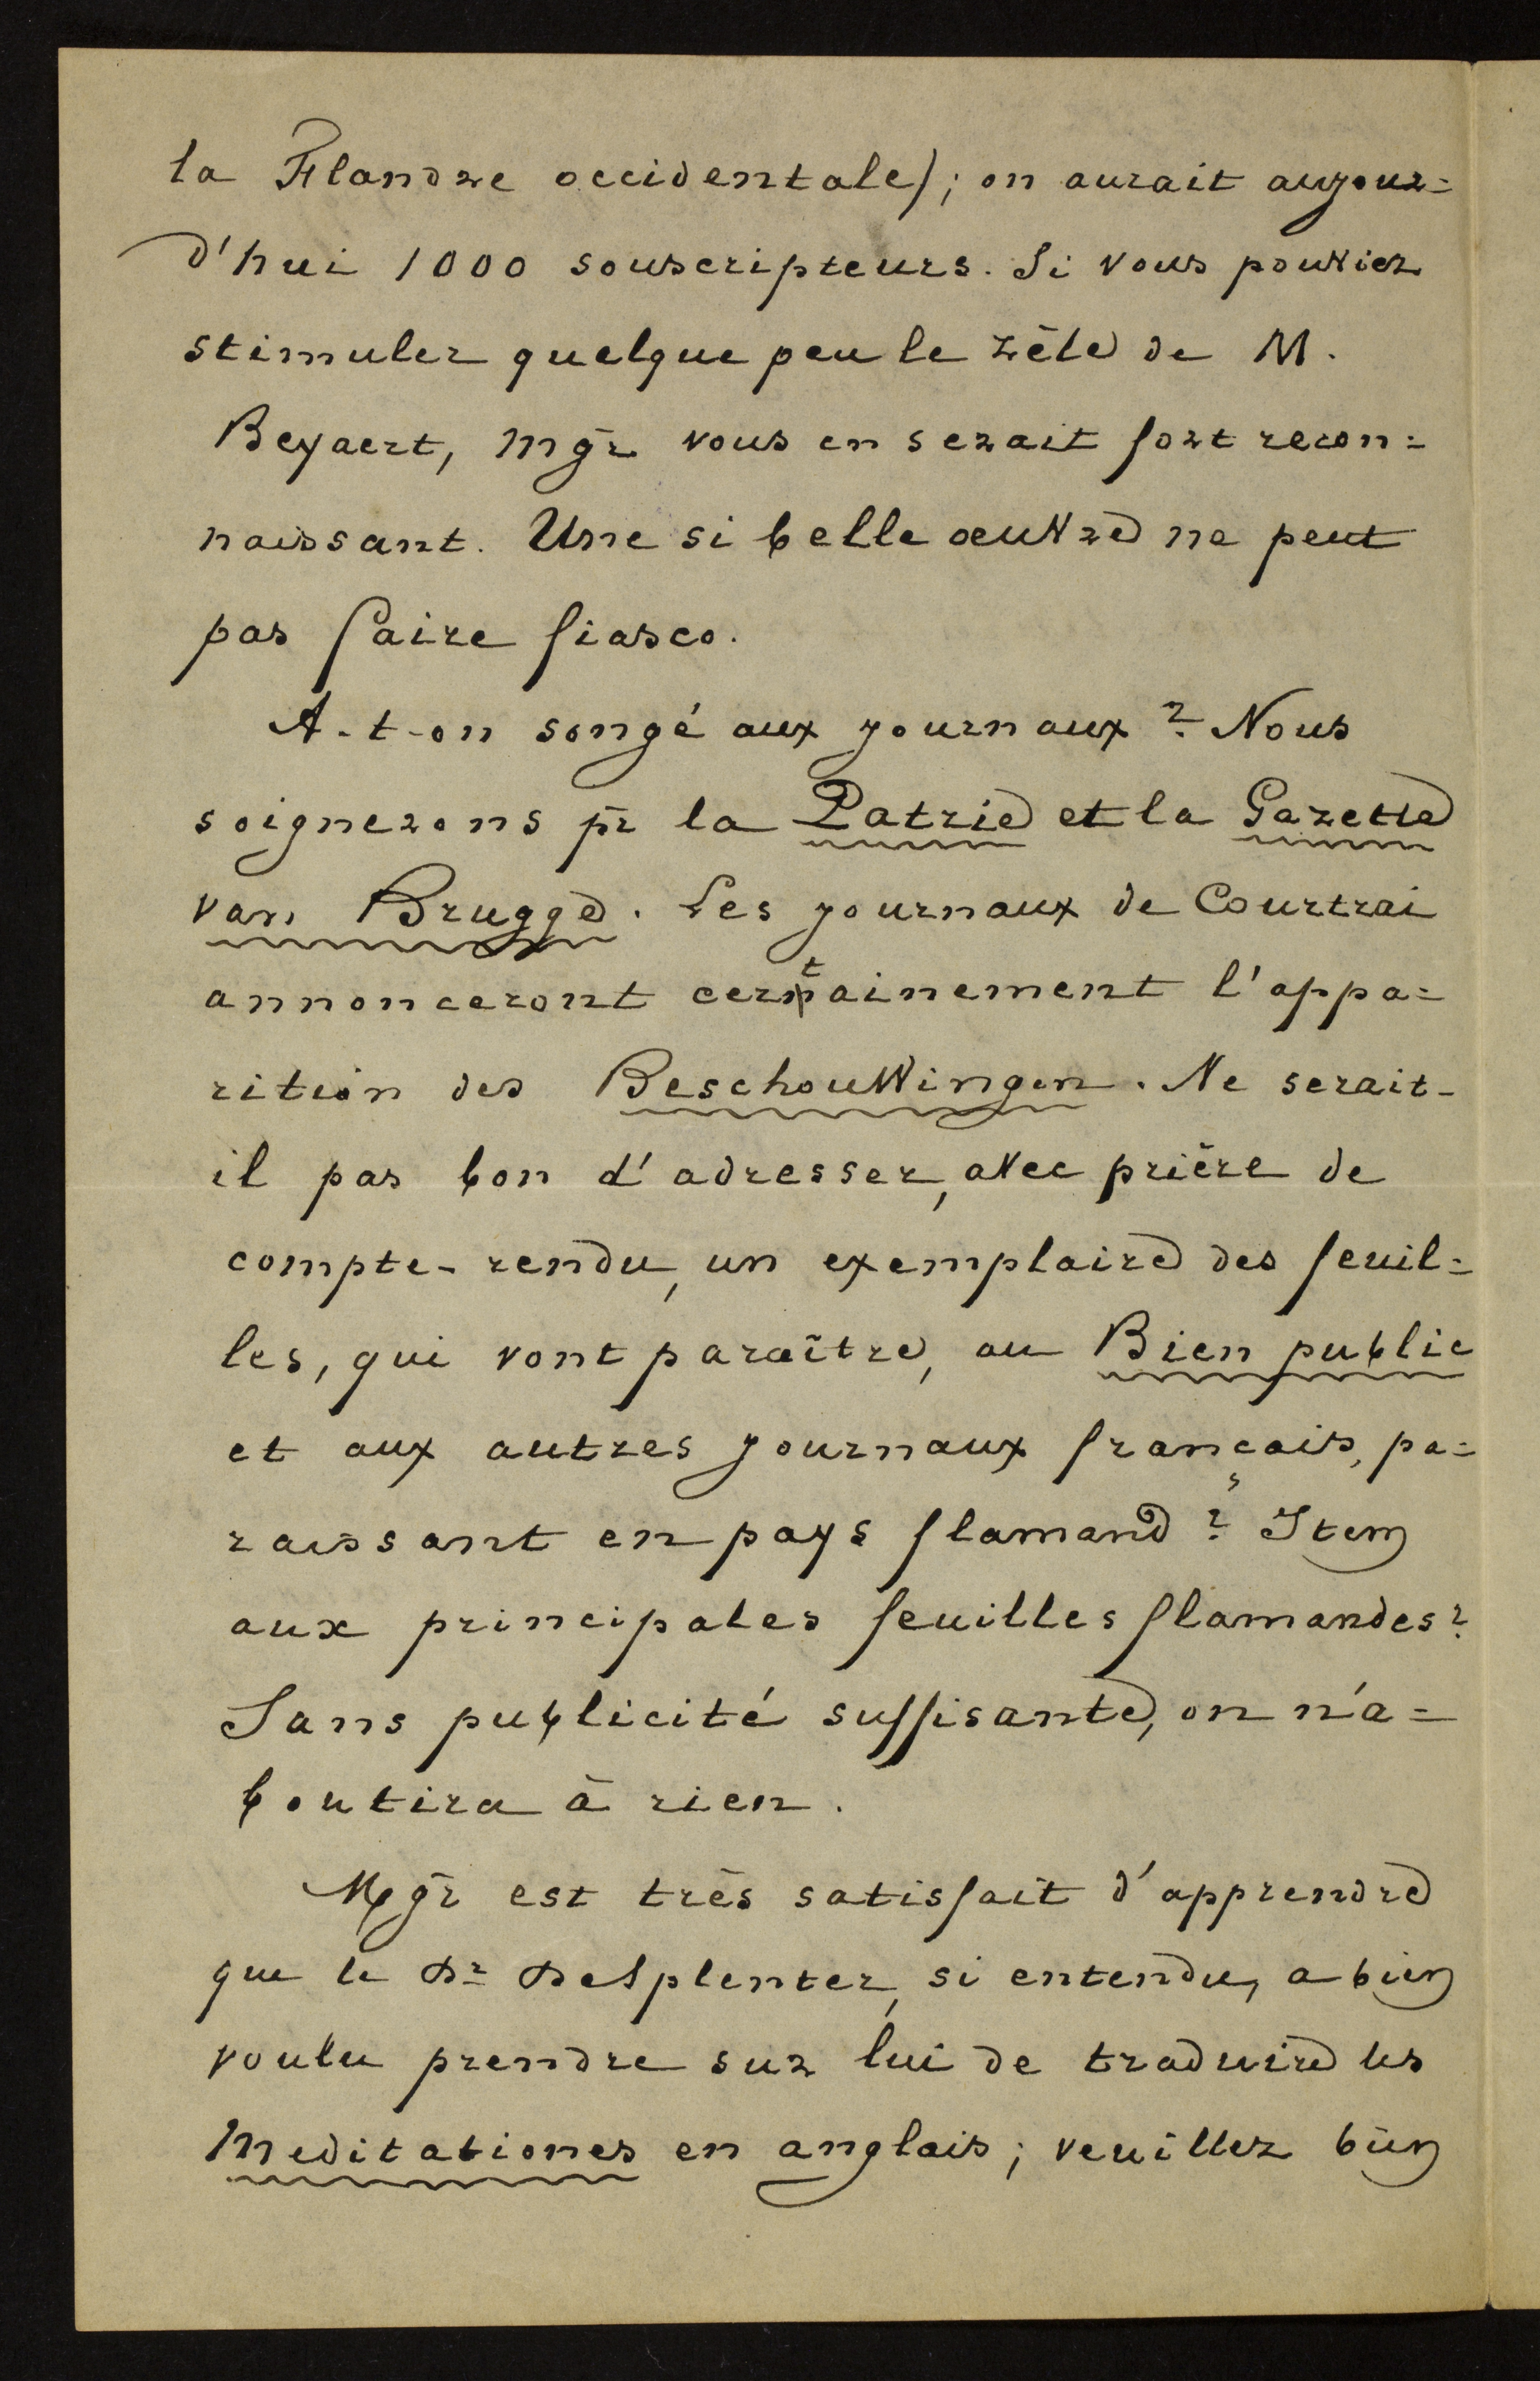 la Flandre occidentale); on aurait aujour=
d'hui 1000 souscripteurs. Si vous pouviez
stimuler quelque peu le zèle de M.
Beyaert, Mgr vous en serait fort recon=
naissant. Une si belle œuvre ne peut
pas faire fiasco.
A-t-on songé aux journaux? Nous
soignerons pr la Patrie et la Gazette
van Brugge. Les journaux de Courtrai
annonceront certainement l'appa=
rition des Beschouwingen. Ne serait-
il pas bon d'adresser, avec prière de
compte-rendu, un exemplaire des feuil=
les, qui vont paraître, au Bien public
et aux autres journaux français, pa=
raissant en pays flamand? Item
aux principales feuilles flamandes?
Sans publicité suffisante, on n'a=
boutira à rien.
Mgr est très satisfait d'apprendre
que le Dr Desplenter, si entendu, a bien
voulu prendre sur lui de traduire les
Meditationes en anglais; veuillez bien